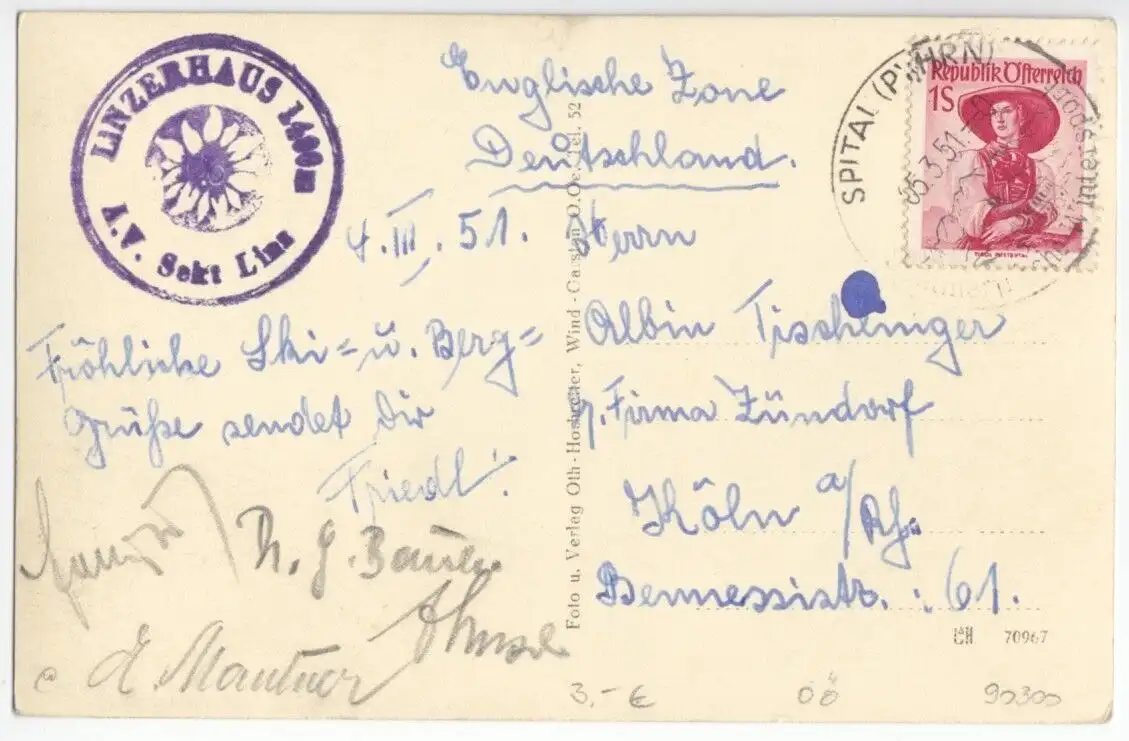 LINZERHAUS 1400m
A.V. Sekt Linz
4.III.51.
Fröhliche Ski= u. Berg=
Grüße sendet Dir
Friedl.
E. Mautner
Foto u. Verlag Oth-Hosbreiter, Wind-Garsten O.Oe. Tel. 52
Englische Zone
Deutschland.
Herrn
Albin Tischeniger
Firma Zündorf
Köln a/Rh.
61.
SPITAL (PYHRN)
05.3.51
Republik Österreich
1S
70967
3.- €
OÖ
90300